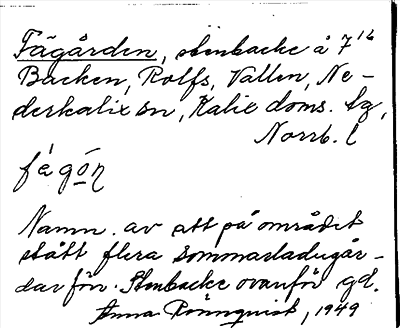 Fägården, stenbacke å 7¹⁶
Backen, Rolfs, Vallen, Ne-
derkalix sn, Kalix doms. lg,
Norrb. l
få gọ́n
Namn. av att på området
stått flera sommarladugår-
dar förr. Stenbacke ovanför gd.
Anna Rönnqvist, 1949